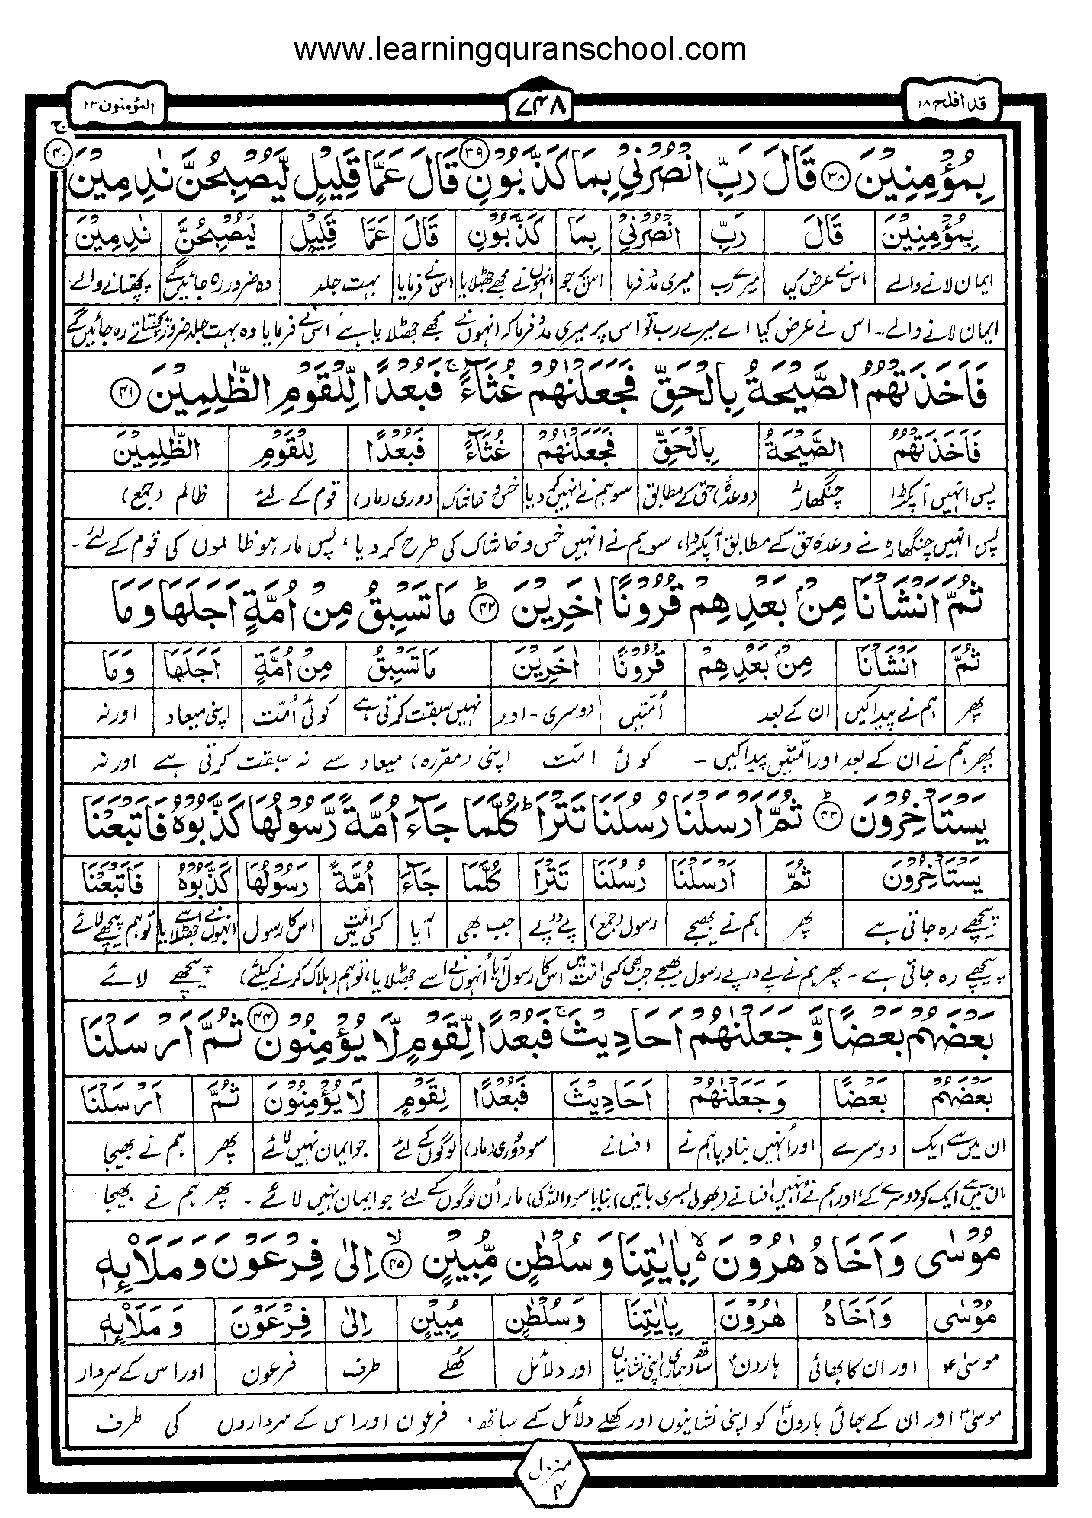 www.learningquranschool.com
قد افلح ۱۸
۷۴۸
المؤمنون ۲۳
بِمُؤْمِنِيْنَ ﴿۳۸﴾ قَالَ رَبِّ انْصُرْنِيْ بِمَا كَذَّبُوْنِ ﴿۳۹﴾ قَالَ عَمَّا قَلِيْلٍ لَّيُصْبِحُنَّ نٰدِمِيْنَ ﴿۴۰﴾ ج
بِمُؤْمِنِيْنَ قَالَ رَبِّ انْصُرْنِيْ بِمَا كَذَّبُوْنِ قَالَ عَمَّا قَلِيْلٍ لَيُصْبِحُنَّ نٰدِمِيْنَ
ایمان لانے والے اس نے عرض کیا میرے رب میری مدد فرما اس پر جو انہوں نے مجھے جھٹلایا اس نے فرمایا بہت جلد وہ ضرور رہ جائیں گے پچھتانے والے
ایمان لانے والے۔ اس نے عرض کیا اے میرے رب تو اس پر میری مدد فرما کہ انہوں نے مجھے جھٹلایا ہے اس نے فرمایا وہ بہت جلد ضرور پچھتاتے رہ جائیں گے
فَاَخَذَتْهُمُ الصَّيْحَةُ بِالْحَقِّ فَجَعَلْنٰهُمْ غُثَآءً ۚ فَبُعْدًا لِّلْقَوْمِ الظّٰلِمِيْنَ ﴿۴۱﴾
فَاَخَذَتْهُمُ الصَّيْحَةُ بِالْحَقِّ فَجَعَلْنٰهُمْ غُثَآءً فَبُعْدًا لِلْقَوْمِ الظّٰلِمِيْنَ
پس انہیں آپکڑا چنگھاڑ (وعدۂ) حق کے مطابق سو ہم نے انہیں کر دیا خس و خاشاک دوری (مار) قوم کے لئے ظالم (جمع)
پس انہیں چنگھاڑ نے وعدۂ حق کے مطابق آپکڑا، سو ہم نے انہیں خس و خاشاک کی طرح کر دیا، پس مار ہو ظالموں کی قوم کے لئے۔
ثُمَّ اَنْشَاْنَا مِنْۢ بَعْدِهِمْ قُرُوْنًا اٰخَرِيْنَ ﴿۴۲﴾ ؕ مَا تَسْبِقُ مِنْ اُمَّةٍ اَجَلَهَا وَمَا
ثُمَّ اَنْشَاْنَا مِنْۢ بَعْدِهِمْ قُرُوْنًا اٰخَرِيْنَ مَا تَسْبِقُ مِنْ اُمَّةٍ اَجَلَهَا وَمَا
پھر ہم نے پیدا کیں ان کے بعد اُمتیں دوسری - اور نہیں سبقت کرتی ہے کوئی امت اپنی میعاد اور نہ
پھر ہم نے ان کے بعد اور اُمتیں پیدا کیں - کوئی امت اپنی (مقررہ) میعاد سے نہ سبقت کرتی ہے اور نہ
يَسْتَاْخِرُوْنَ ﴿۴۳﴾ ؕ ثُمَّ اَرْسَلْنَا رُسُلَنَا تَتْرَا ؕ كُلَّمَا جَآءَ اُمَّةً رَّسُوْلُهَا كَذَّبُوْهُ فَاَتْبَعْنَا
يَسْتَاْخِرُوْنَ ثُمَّ اَرْسَلْنَا رُسُلَنَا تَتْرَا كُلَّمَا جَآءَ اُمَّةً رَسُوْلُهَا كَذَّبُوْهُ فَاَتْبَعْنَا
پیچھے رہ جاتی ہے پھر ہم نے بھیجے رسول (جمع) پے در پے جب بھی آیا کسی امت میں اس کا رسول انہوں نے اسے جھٹلایا تو ہم پیچھے لائے
پیچھے رہ جاتی ہے - پھر ہم نے پے در پے رسول بھیجے جب بھی کسی امت میں اس کا رسول آیا اُنہوں نے اسے جھٹلایا، تو ہم (ہلاک کرنے کیلئے) پیچھے لائے
بَعْضَهُمْ بَعْضًا وَّجَعَلْنٰهُمْ اَحَادِيْثَ ۚ فَبُعْدًا لِّقَوْمٍ لَّا يُؤْمِنُوْنَ ﴿۴۴﴾ ثُمَّ اَرْسَلْنَا
بَعْضَهُمْ بَعْضًا وَجَعَلْنٰهُمْ اَحَادِيْثَ فَبُعْدًا لِقَوْمٍ لَا يُؤْمِنُوْنَ ثُمَّ اَرْسَلْنَا
ان میں سے ایک دوسرے اور اُنہیں بنادیا ہم نے افسانے سو دوری (مار) لوگوں کے لئے جو ایمان نہیں لائے پھر ہم نے بھیجا
ان میں سے ایک کو دوسرے کے اور ہم نے اُنہیں افسانے (بھولی بسری باتیں) بنایا سو (اللہ کی) مار اُن لوگوں کے لئے جو ایمان نہیں لائے ۔ پھر ہم نے بھیجا
مُوْسٰى وَاَخَاهُ هٰرُوْنَ ۙ بِاٰيٰتِنَا وَسُلْطٰنٍ مُّبِيْنٍ ﴿۴۵﴾ ۙ اِلٰى فِرْعَوْنَ وَمَلَا۟ئِهٖ
مُوْسٰى وَاَخَاهُ هٰرُوْنَ بِاٰيٰتِنَا وَسُلْطٰنٍ مُبِيْنٍ اِلٰى فِرْعَوْنَ وَمَلَا۟ئِهٖ
موسیٰؑ اور ان کا بھائی ہارونؑ ساتھ (ہماری) اپنی نشانیاں اور دلائل کھلے طرف فرعون اور اس کے سردار
موسیٰؑ اور ان کے بھائی ہارونؑ کو اپنی نشانیوں اور کھلے دلائل کے ساتھ، فرعون اور اس کے سرداروں کی طرف
منزل ۴